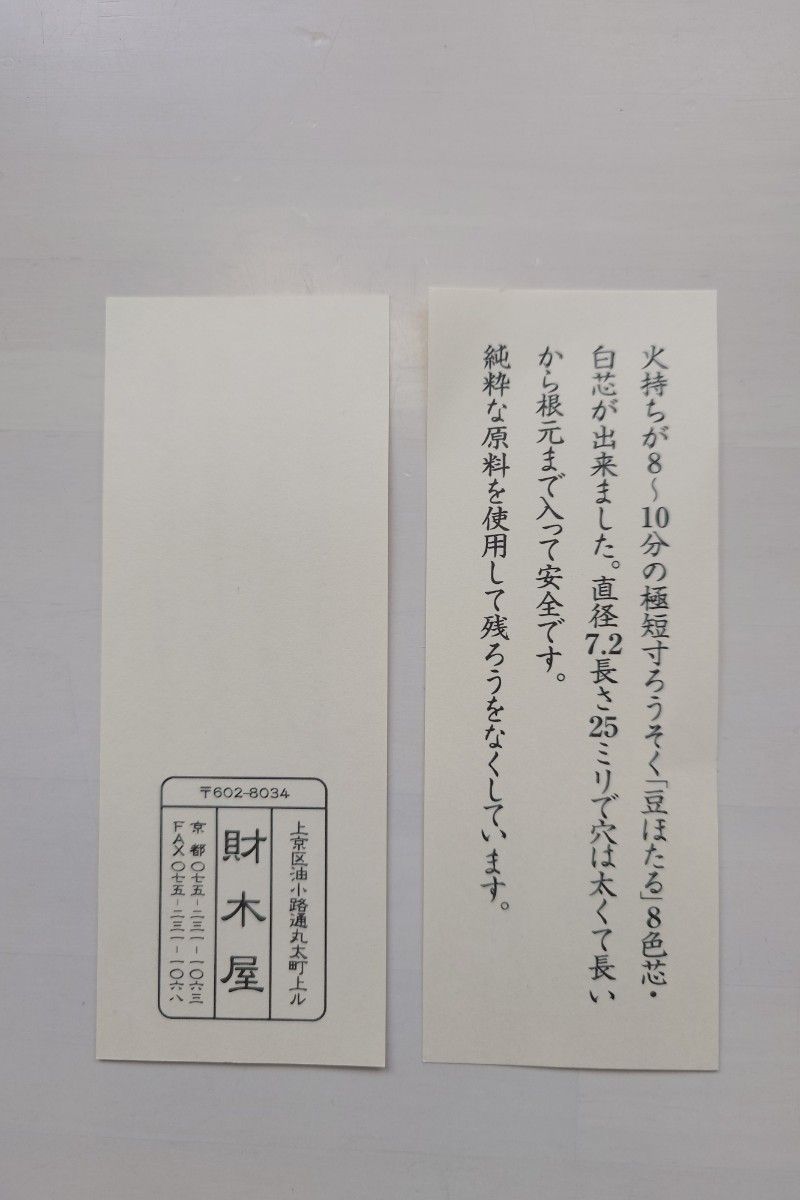 火持ちが8〜10分の極短寸ろうそく「豆ほたる」8色芯・
白芯が出来ました。直径7.2長さ25ミリで穴は太くて長い
から根元まで入って安全です。
純粋な原料を使用して残ろうをなくしています。
〒602-8034
上京区油小路通丸太町上ル
財木屋
京都〇七五-二三一-一〇六三
FAX〇七五-二三一-一〇六八